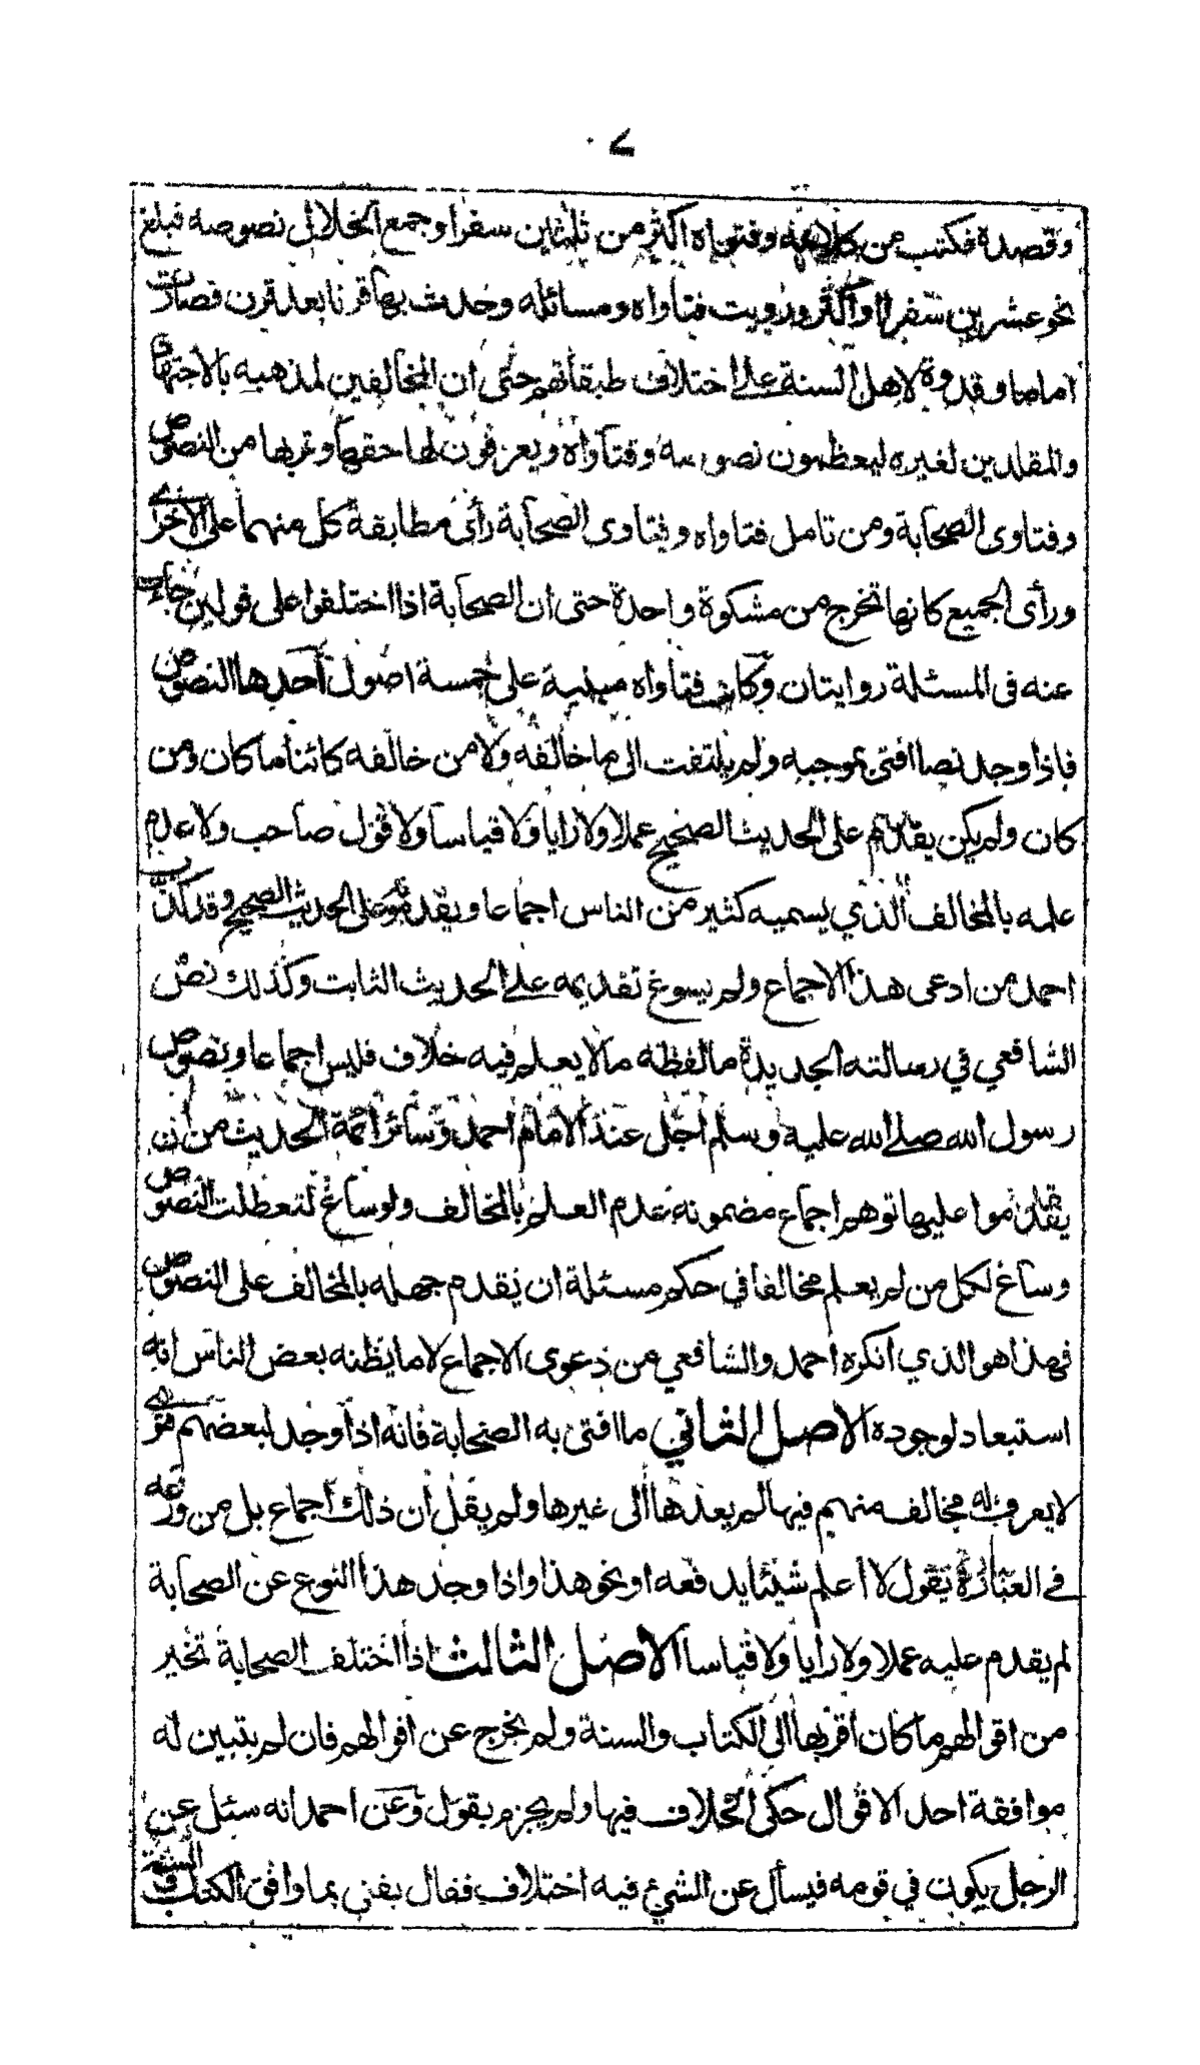 ٧
وقصده فكتب من كلامه وفتواه اكثر من ثلثين سفرا وجمع الخلال نصوصه فبلغ
نحو عشرين سفرا او اكثر ورويت فتاواه ومسائله وحدث بها قرنا بعد قرن فصارت
اماما وقدوة لاهل السنة على اختلاف طبقاتهم حتى ان المخالفين لمذهبه بالاجتهاد
والمقلدين لغيره ليعظمون نصوصه وفتاواه ويعرفون لها حقها وقربها من النصوص
وفتاوى الصحابة ومن تامل فتاواه وفتاوى الصحابة رأى مطابقة كل منهما على الاخرى
ورأى الجميع كانها تخرج من مشكوة واحدة حتى ان الصحابة اذا اختلفوا على قولين جاء
عنه فى المسئلة روايتان وكانت فتاواه مبنية على خمسة اصول احدها النصوص
فاذا وجد نصا افتى بموجبه ولم يلتفت الى ما خالفه ولا من خالفه كائنا ما كان ومن
كان ولم يكن يقدم على الحديث الصحيح عملا ولا رايا ولا قياسا ولا قول صاحب ولا عدم
علمه بالمخالف الذي يسميه كثير من الناس اجماعا ويقدمونه على الحديث الصحيح وقد كذب
احمد من ادعى هذا الاجماع ولم يسوغ تقديمه على الحديث الثابت وكذلك نص
الشافعي في رسالته الجديدة ما لفظه مالا يعلم فيه خلاف فليس اجماعا ونصوص
رسول الله صلى الله عليه وسلم اجل عند الامام احمد وسائر ائمة الحديث من ان
يقدموا عليها توهم اجماع مضمونه عدم العلم بالمخالف ولو ساغ لتعطلت النصوص
وساغ لكل من لم يعلم مخالفا في حكم مسئلة ان يقدم جهله بالمخالف على النصوص
فهذا هو الذي انكره احمد والشافعي من دعوى الاجماع لا ما يظنه بعض الناس انه
استبعاد لوجوده الاصل الثاني ما افتى به الصحابة فانه اذا وجد لبعضهم فتوى
لا يعرف له مخالف منهم فيها لم يعدها الى غيرها ولم يقل ان ذلك اجماع بل من ورعه
في العبارة يقول لا اعلم شيئا يدفعه او نحو هذا واذا وجد هذا النوع عن الصحابة
لم يقدم عليه عملا ولا رأيا ولا قياسا الاصل الثالث اذا اختلف الصحابة تخير
من اقوالهم ما كان اقربها الى الكتاب والسنة ولم يخرج عن اقوالهم فان لم يتبين له
موافقة احد الاقوال حكى الخلاف فيها ولم يجزم بقول وعن احمد انه سئل عن
الرجل يكون في قومه فيسأل عن الشئ فيه اختلاف فقال يفتى بما وافق الكتاب والسنة